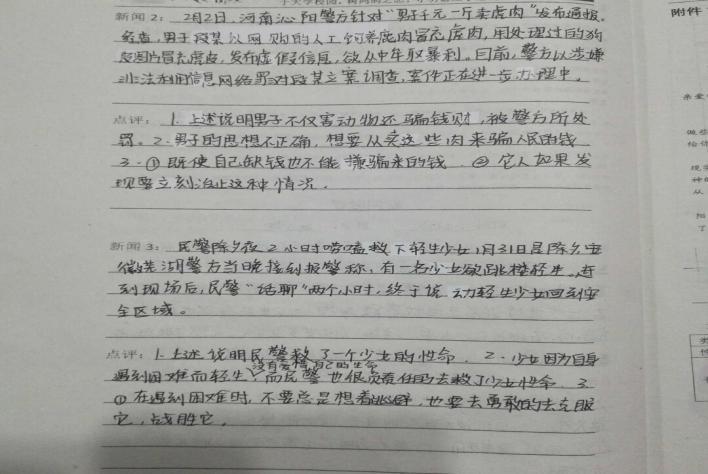 附件
新闻2： 2月2日，河南沁阳警方针对“男子千元一斤卖虎肉”发布通报。
经查，男子段某以网购的人工饲养鹿肉冒充虎肉，用处理过的狗
皮图片冒充虎皮，发布虚假信息，欲从中牟取暴利。目前，警方以涉嫌
非法利用信息网络罪对段某立案调查，案件正在进一步办理中。
点评： 1. 上述说明男子不仅害动物还骗钱财，被警方所处
罚。2. 男子的思想不正确，想要从卖这些肉来骗人民的钱
3. ①既使自己缺钱也不能赚骗来的钱 ②它人如果发
现要立刻治止这种情况．
新闻3： 民警除夕夜2小时唠嗑救下轻生少女1月31日是除夕安
徽芜湖警方当晚接到报警称，有一名少女欲跳楼轻生，赶
到现场后，民警“话聊”两个小时，终于说动轻生少女回到安
全区域。
点评： 1. 上述说明民警救了一个少女的性命． 2. 少女因为自身
没有爱惜自己的生命
遇到困难而轻生，而民警也很负责任的去救了少女性命．3.
①在遇到困难时，不要总是想着逃避，也要去勇敢的去克服
它，战胜它．